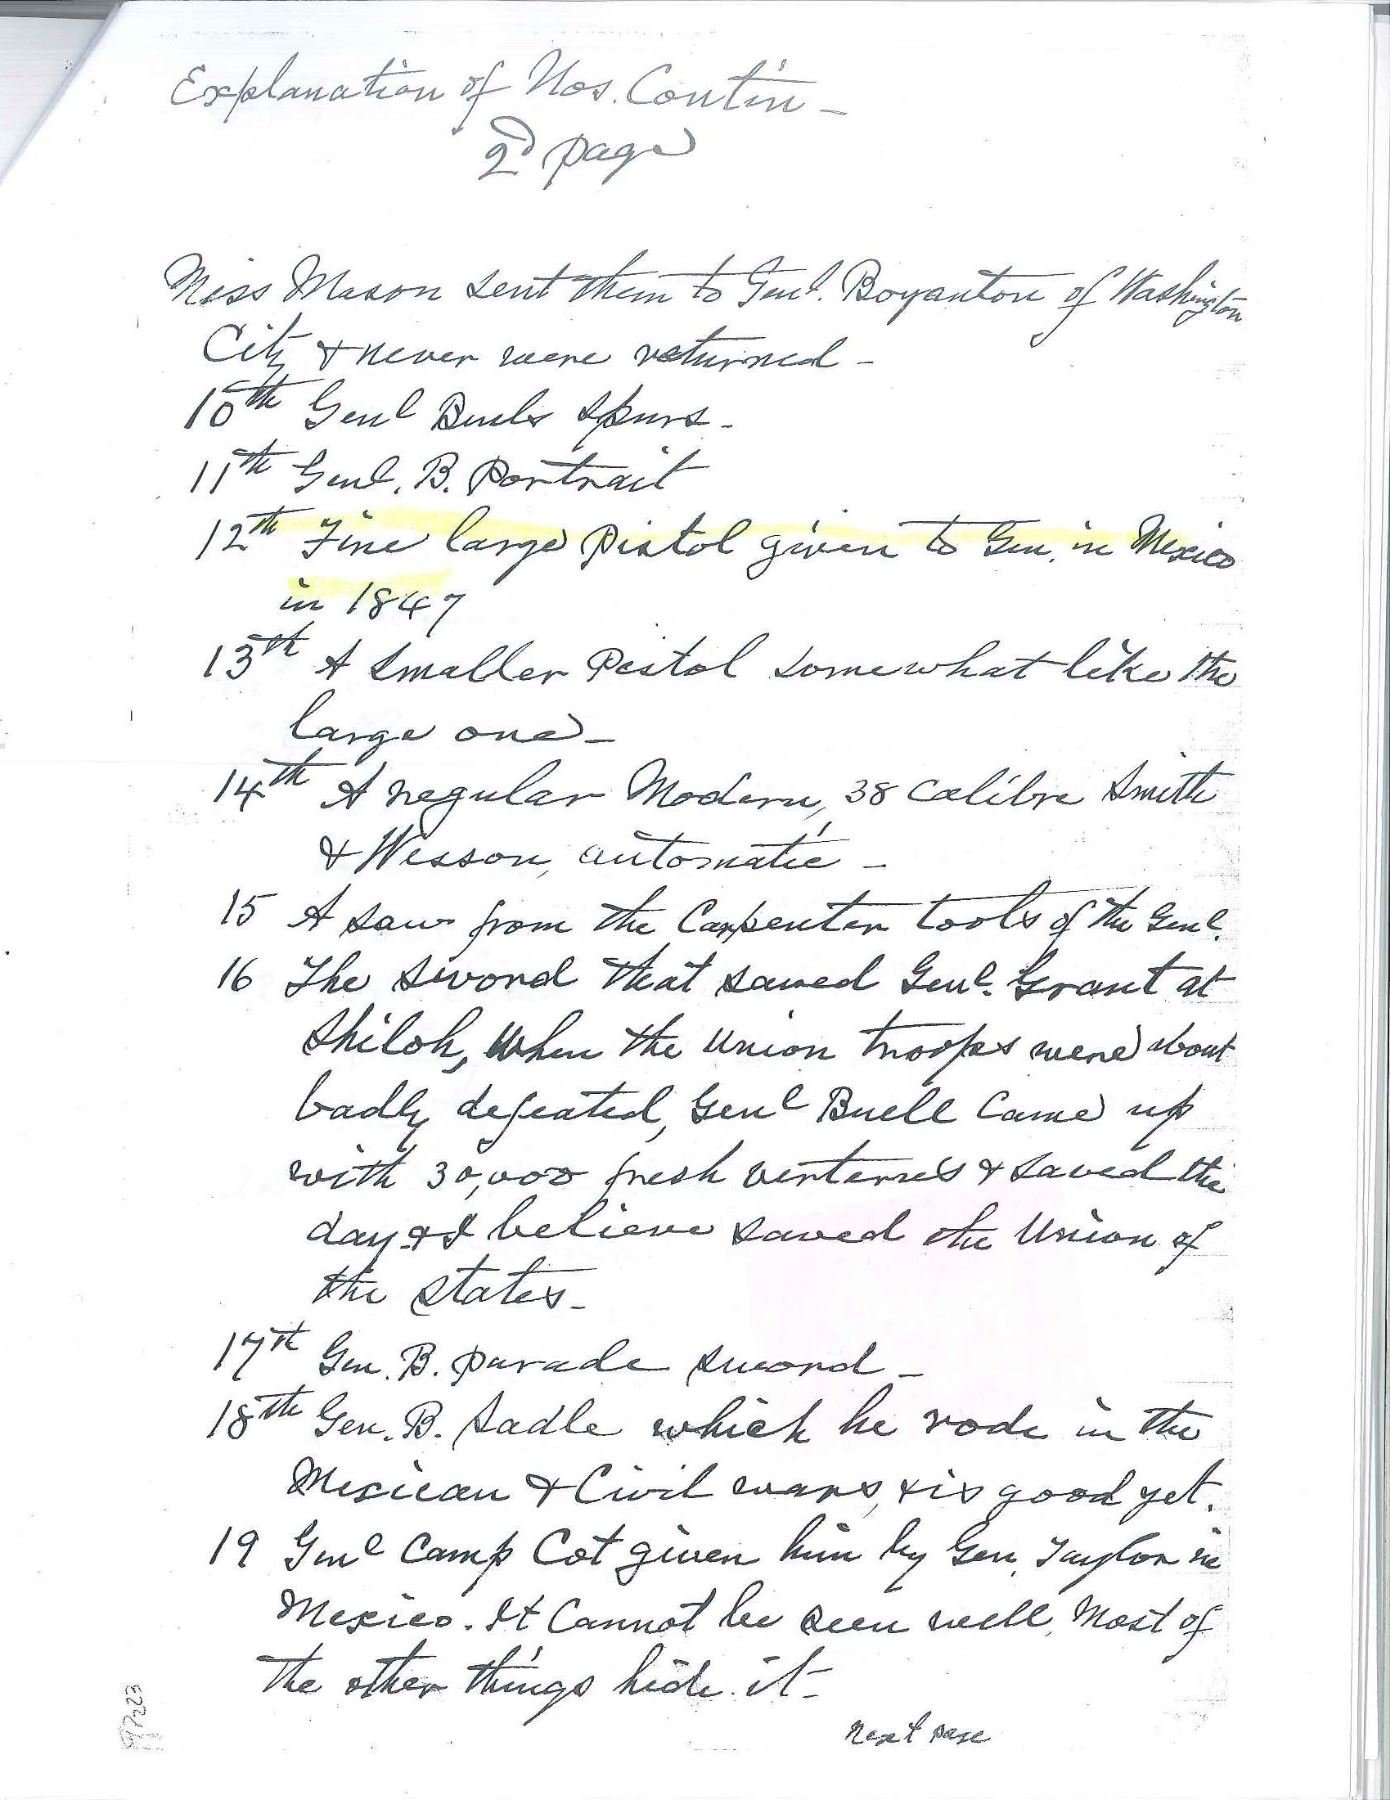 Explanation of Nos. Contin -
2d page
Miss Mason sent them to Genl. Boyanton of Washington
City & never were returned -
10th Genl Buels spurs -
11th Genl. B. Portrait
12th Fine large Pistol given to Gen. in Mexico
in 1847
13th A smaller Pistol somewhat like the
large one -
14th A regular Modern, 38 Calibre Smith
& Wesson, automatic -
15 A saw from the Carpenter tools of the Genl.
16 The sword that saved Genl. Grant at
Shiloh, when the Union troops were about
badly defeated, Genl Buell Came up
with 30,000 fresh & saved the
day & I believe saved the Union of
the States -
17th Gen. B. parade sword -
18th Gen. B. Sadle which he rode in the
Mexican & Civil wars, & is good yet.
19 Genl Camp Cot given him by Gen. Taylor in
Mexico. It Cannot be seen well, Most of
the other things hide it -
Next page